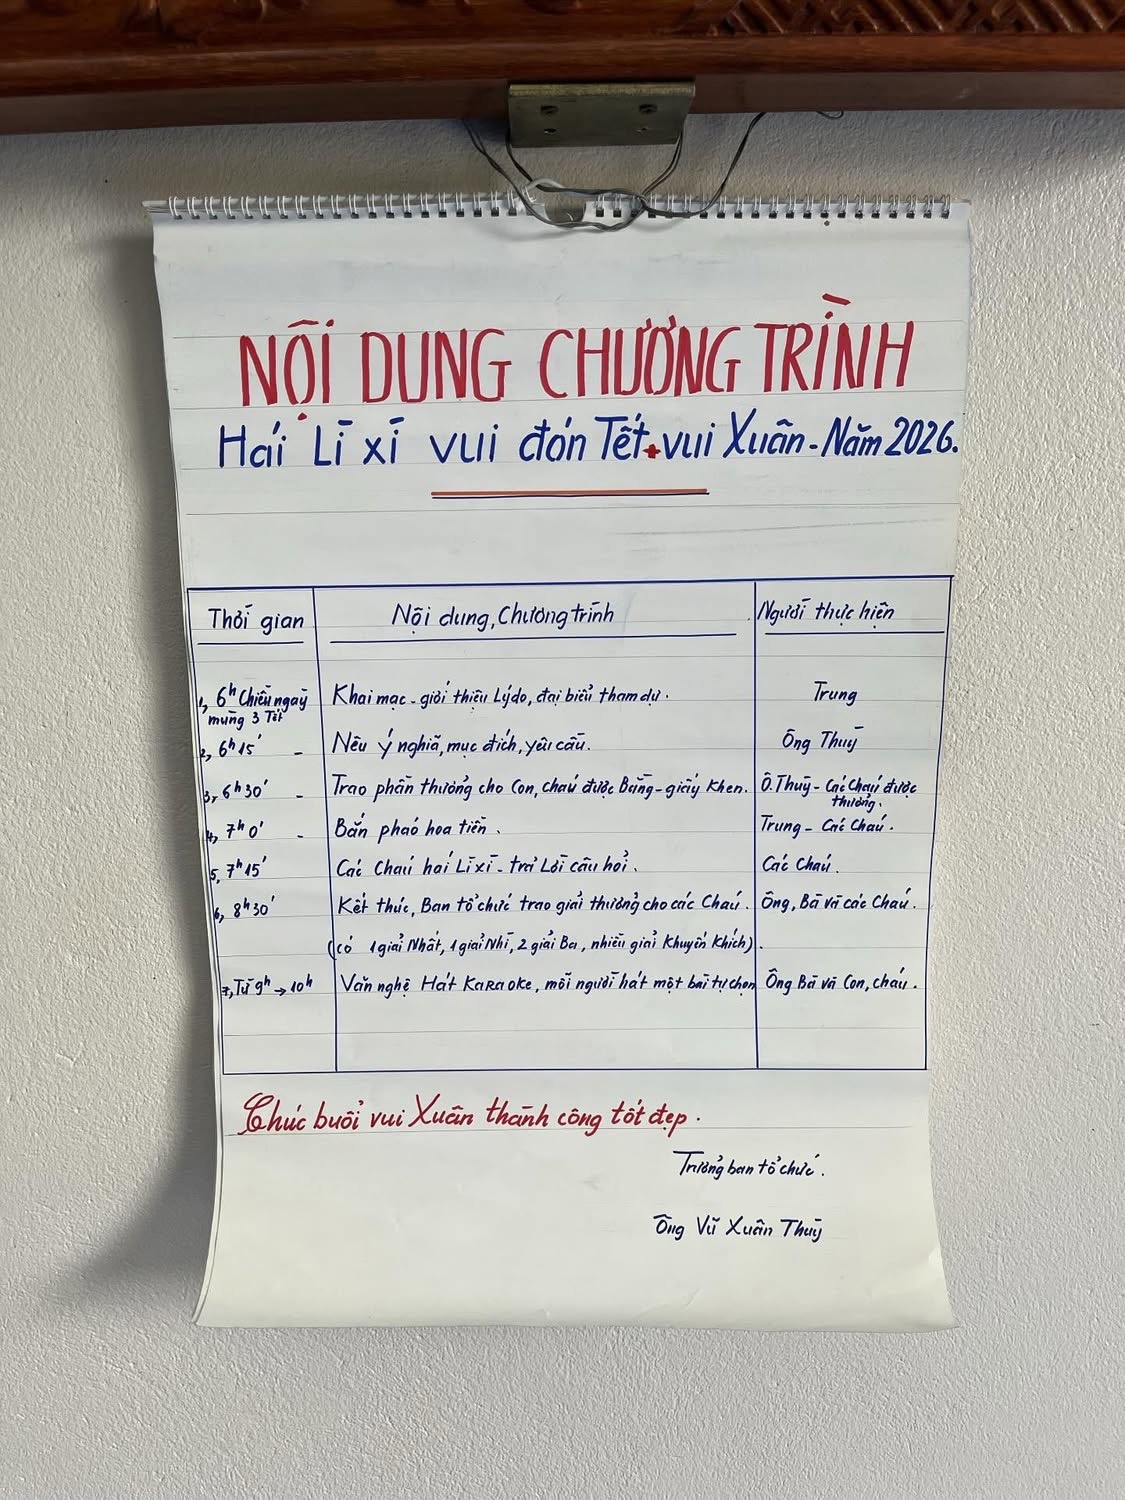 NỘI DUNG CHƯƠNG TRÌNH
Hái Lì xì vui đón Tết + vui Xuân - Năm 2026.
Thời gian
Nội dung, Chương trình
Người thực hiện
1, 6h Chiều ngày mùng 3 Tết
Khai mạc - giới thiệu Lý do, đại biểu tham dự.
Trung
2, 6h15' -
Nêu ý nghĩa, mục đích, yêu cầu.
Ông Thuỳ
3, 6h30' -
Trao phần thưởng cho Con, cháu được Bằng - giấy Khen.
Ô. Thuỳ - Các Cháu được thưởng.
4, 7h0' -
Bắn pháo hoa tiền.
Trung - Các Cháu.
5, 7h15'
Các Cháu hái Lì xì - trả Lời câu hỏi.
Các Cháu.
6, 8h30'
Kết thúc, Ban tổ chức trao giải thưởng cho các Cháu.
Ông, Bà và các Cháu.
(có 1 giải Nhất, 1 giải Nhì, 2 giải Ba, nhiều giải Khuyến Khích).
7, Từ 9h → 10h
Văn nghệ Hát KARAOKe, mỗi người hát một bài tự chọn
Ông Bà và Con, cháu.
Chúc buổi vui Xuân thành công tốt đẹp.
Trưởng ban tổ chức.
Ông Vũ Xuân Thuỳ